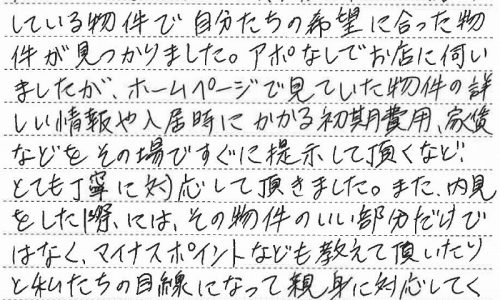 している物件で自分たちの希望に合った物
件が見つかりました。アポなしでお店に伺い
ましたが、ホームページで見ていた物件の詳
しい情報や入居時にかかる初期費用、家賃
などをその場ですぐに提示して頂くなど
とても丁寧に対応して頂きました。また、内見
をした際には、その物件のいい部分だけで
はなく、マイナスポイントなども教えて頂いたり
と私たちの目線になって親身に対応してく